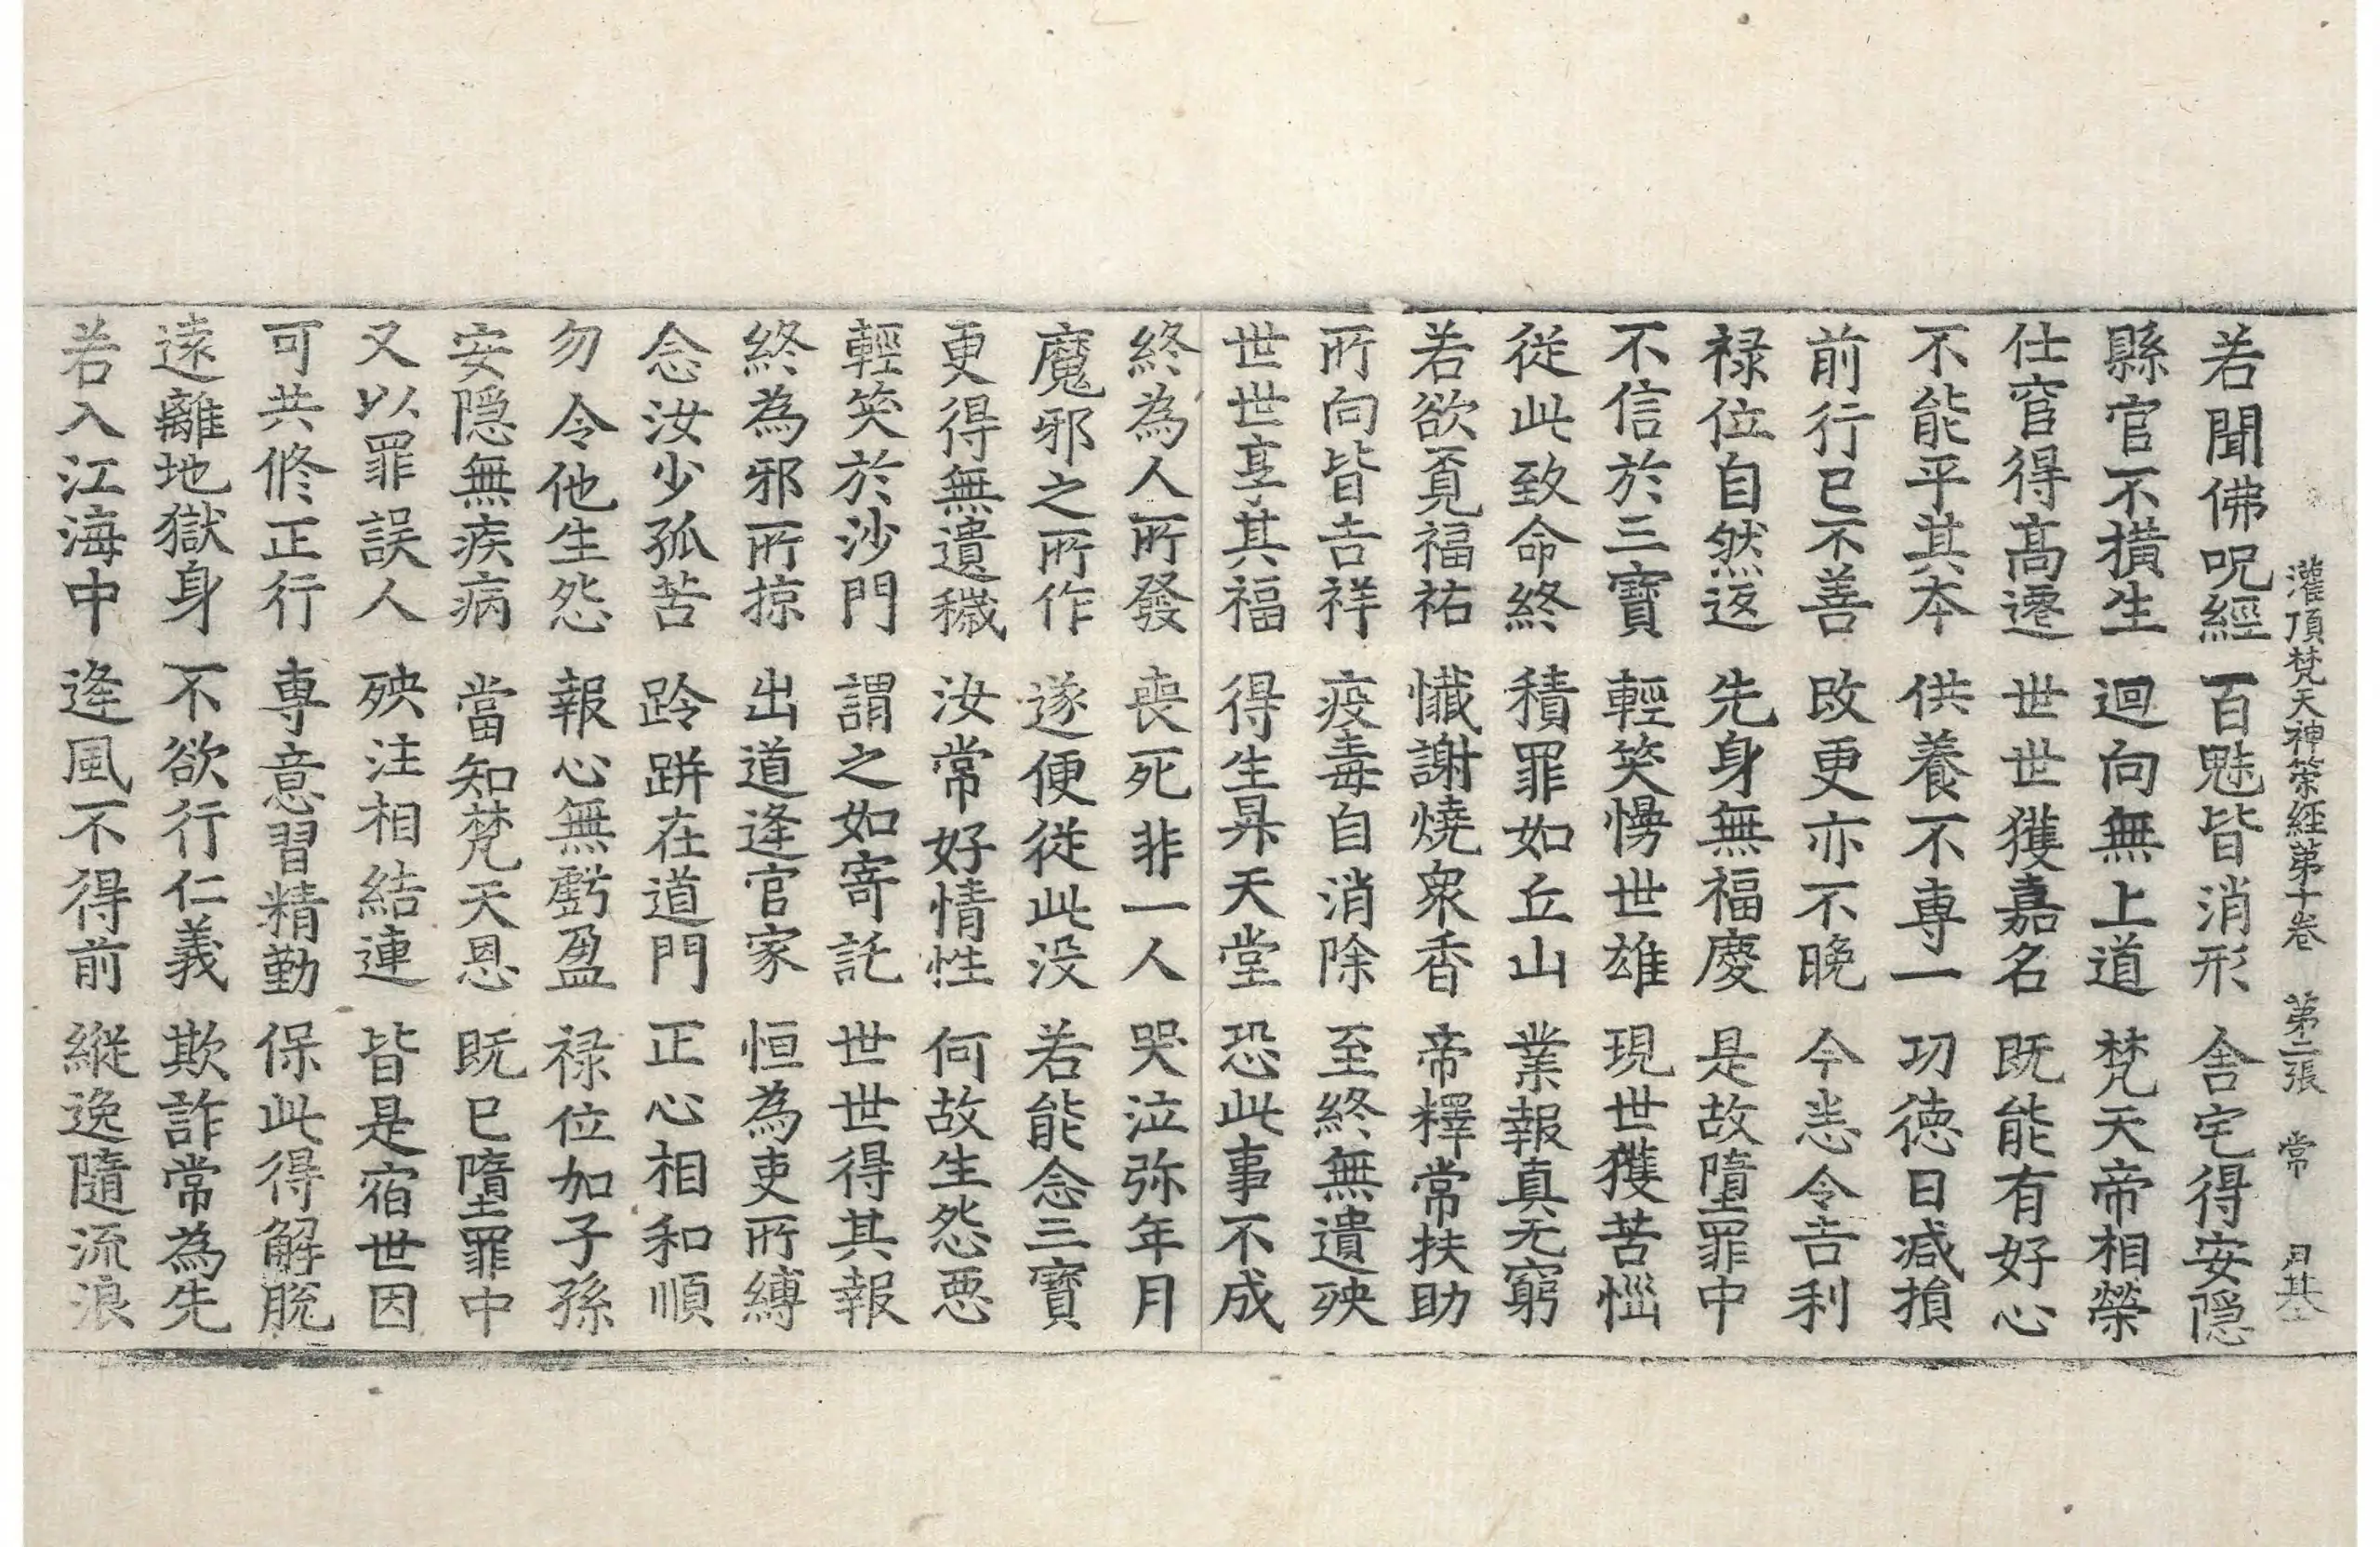 灌頂梵天神策経第十卷　第二張　常　月基
若聞佛呪經　百魅皆消形　舎宅得安隠
縣官不撗生　迴向無上道　梵天帝相榮
仕窅得髙遷　世世獲嘉名　既能有好心
不能平其夲　供養不專一　㓛德日减損
前行已不善　改更亦不晚　今恙令吉利
禄位自然返　先身無福慶　是故墮罪中
不信於三寶　輕笑慢世雄　現世獲苦惱
從此致命終　積罪如丘山　業報真无窮
若欲覓福祐　懺謝燒衆香　帝釋常扶助
所向皆吉祥　疫毒自消除　至終無遺殃
世世享其福　得生昇天堂　恐此事不成
終為人所發　喪死非一人　哭泣弥年月
魔邪之所作　遂便從此没　若能念三寶
更得無遺穢　汝常好情性　何故生怨惡
輕笑於沙門　謂之如寄託　世世得其報
終為邪所掠　出道逢官家　恒為吏所縛
念汝少孤苦　跉跰在道門　正心相和順
勿令他生怨　報心無虧盈　禄位加子孫
安隠無疾病　當知梵天恩　既已墮罪中
又以罪誤人　殃注相結連　皆是宿世因
可共脩正行　專意習精勤　保此得解脫
遠離地獄身　不欲行仁義　欺詐常為先
若入江海中　逢風不得前　縱逸隨流浪